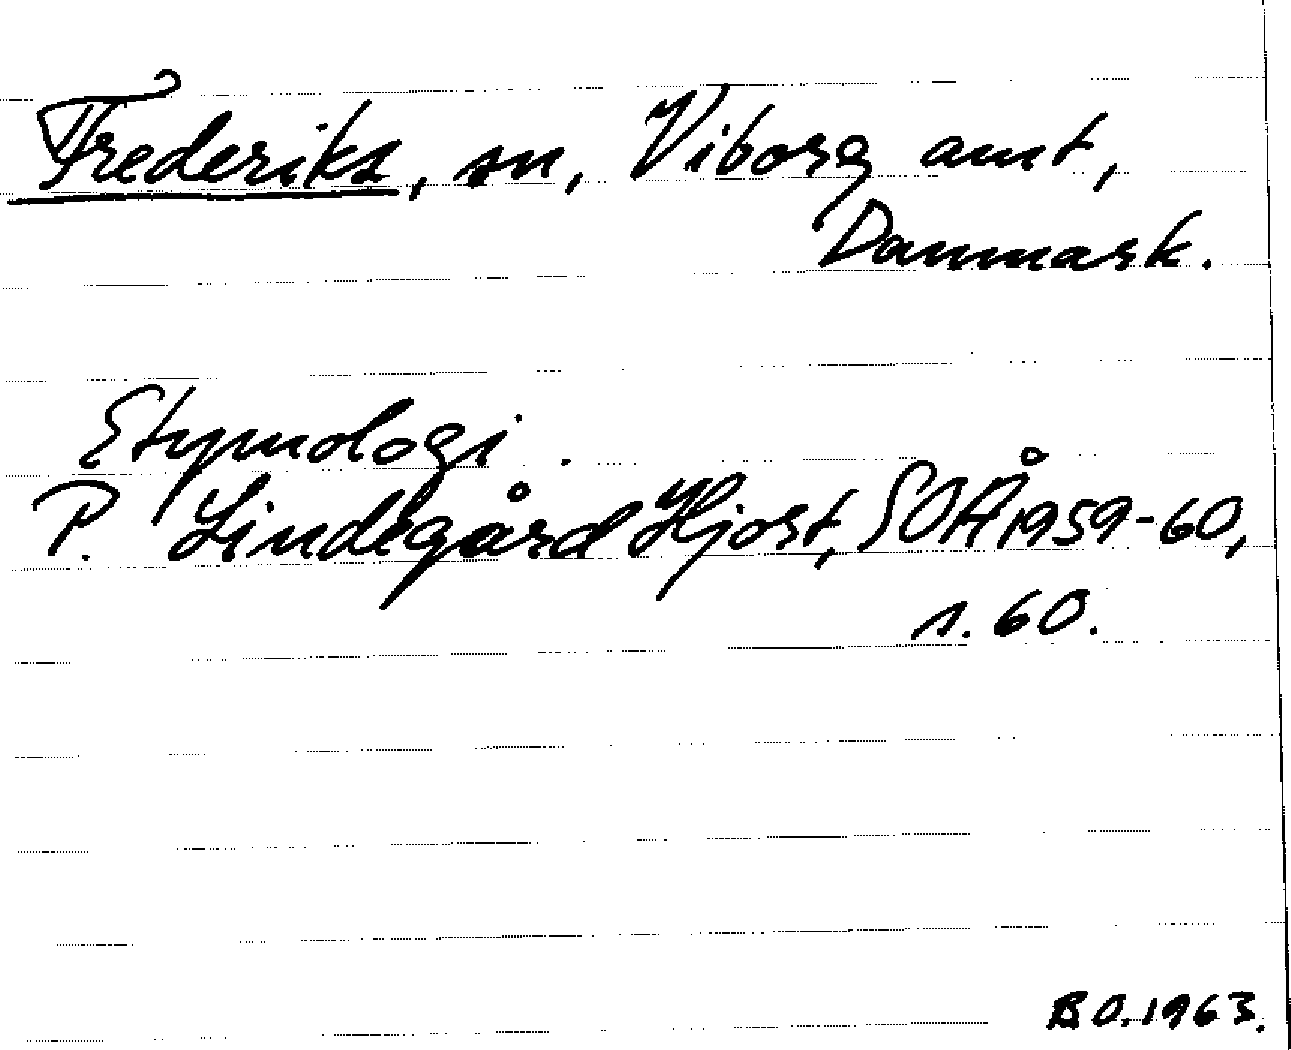 Frederiks, sn, Viborg amt,
Danmark.
Etymologi.
P. Lindegård Hjorst, SOÅ 1959-60,
s. 60.
B O. 1963.